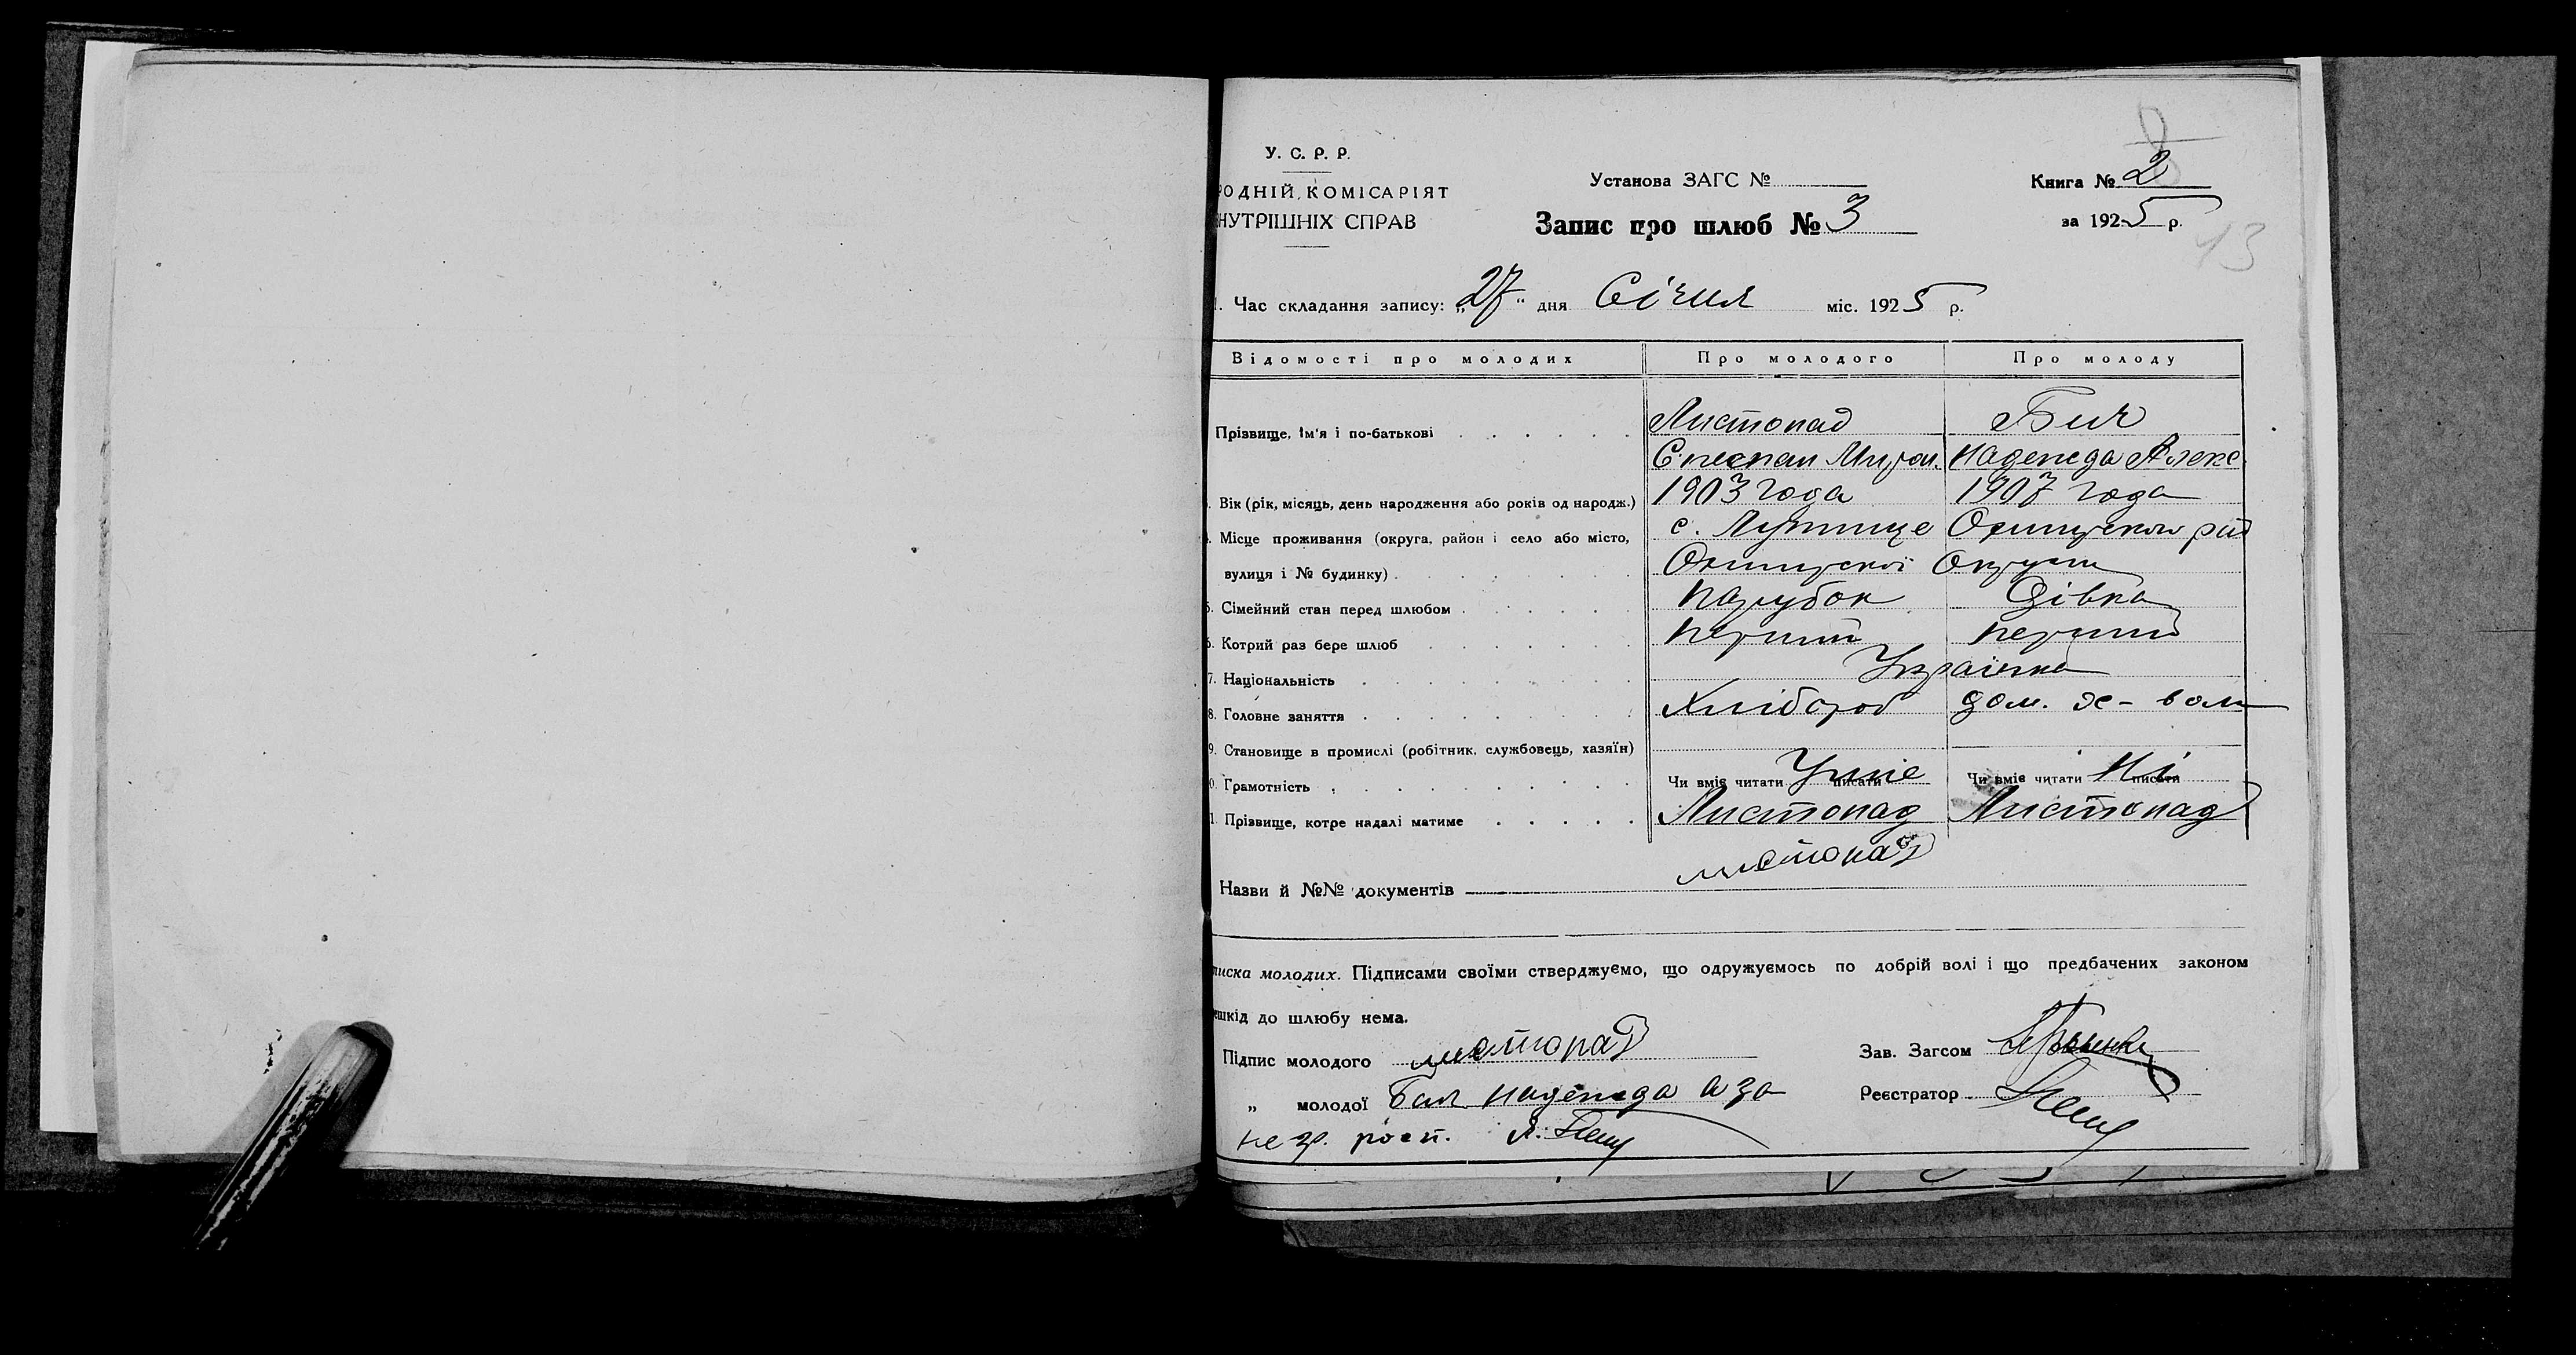 У. С. Р. Р.
РОДНІЙ КОМІСАРІЯТ
НУТРІШНІХ СПРАВ
Установа ЗАГС №
Запис про шлюб № 3
Книга № 2
за 1925 р.
13
1. Час складання запису: „27“ дня Січня міс. 1925 р.
Відомості про молодих Про молодого Про молоду
Прізвище, ім'я і по-батькові Листопад Бич
Надежда Алекс
Вік (рік, місяць, день народження або років од народж.) 1903 года 1907 года
Місце проживання (округа, район і село або місто, с. Лутище Охтирского
вулиця і № будинку) Охтирскої Округи
5. Сімейний стан перед шлюбом Парубок Дівка
6. Котрий раз бере шлюб перший перший
7. Національність Українка
8. Головне заняття Хлібороб дом. х-вом
9. Становище в промислі (робітник, службовець, хазяїн)
0. Грамотність Чи вміє читати писати Уміє Чи вміє читати писати Ні
1. Прізвище, котре надалі матиме Листопад Листопад
Назви й №№ документів листопад
писка молодих. Підписами своїми стверджуємо, що одружуємось по добрій волі і що предбачених законом
ешкід до шлюбу нема.
Підпис молодого Зав. Загсом
„ молодої Бич Надежда а за Реєстратор
не гр. росп.